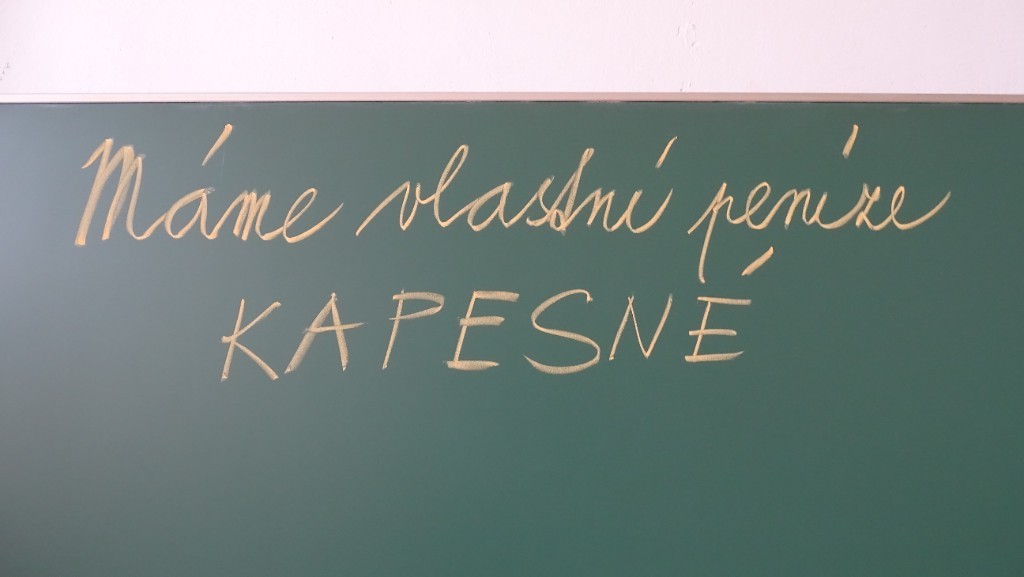 Máme vlastní peníze
KAPESNÉ